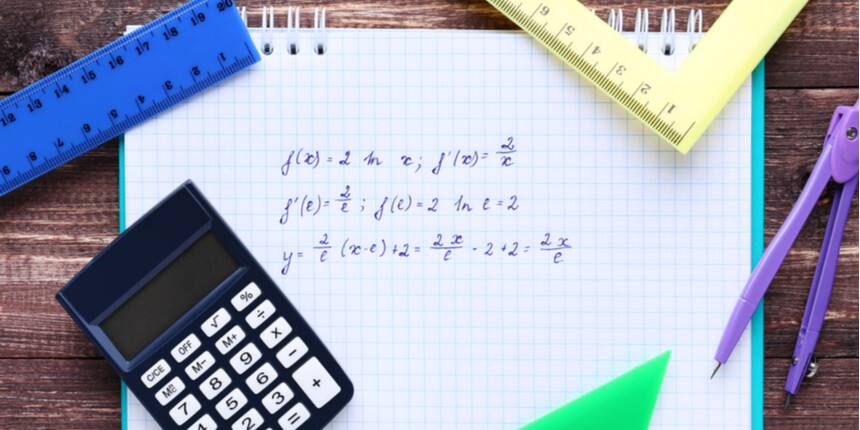 f(x) = 2 ln x; f'(x) = 2/x
f'(e) = 2/e; f(e) = 2 ln e = 2
y = 2/e (x-e) + 2 = 2x/e - 2 + 2 = 2x/e
12 13 14 15 16 17 18 19 20
8 7 6 5 4 3 2 1
6 5 4 3 2 1
C/CE OFF √ %
MRC M- M+ ÷
7 8 9 x
4 5 6 -
2 3 +
=